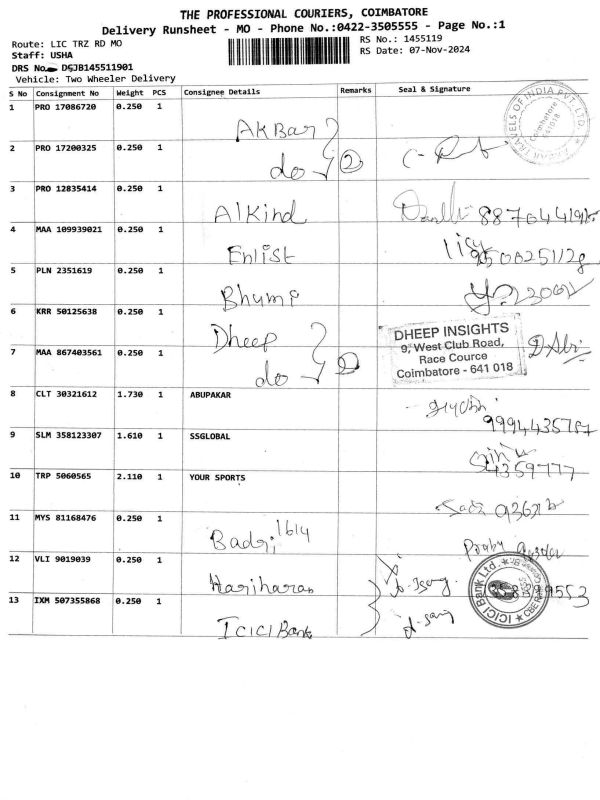 THE PROFESSIONAL COURIERS, COIMBATORE
Delivery Runsheet - MO - Phone No.:0422-3505555 - Page No.:1
Route: LIC TRZ RD MO
RS No.: 1455119
Staff: USHA
RS Date: 07-Nov-2024
DRS No. DSJB145511901
Vehicle: Two Wheeler Delivery
S No Consignment No Weight PCS Consignee Details Remarks Seal & Signature
1 PRO 17086720 0.250 1 Akbar
2 PRO 17200325 0.250 1 do 2
3 PRO 12835414 0.250 1 Alkind
4 MAA 109939021 0.250 1 Enlist
5 PLN 2351619 0.250 1 Bhumi
6 KRR 50125638 0.250 1 Dheep
DHEEP INSIGHTS
9, West Club Road,
Race Cource
Coimbatore - 641 018
7 MAA 867403561 0.250 1 do 2
8 CLT 30321612 1.730 1 ABUPAKAR
9 SLM 358123307 1.610 1 SSGLOBAL
10 TRP 5060565 2.110 1 YOUR SPORTS
11 MYS 81168476 0.250 1 Badri 1614
12 VLI 9019039 0.250 1 Hariharan
13 IXM 507355868 0.250 1 ICICI Bank
ICICI Bank Ltd.